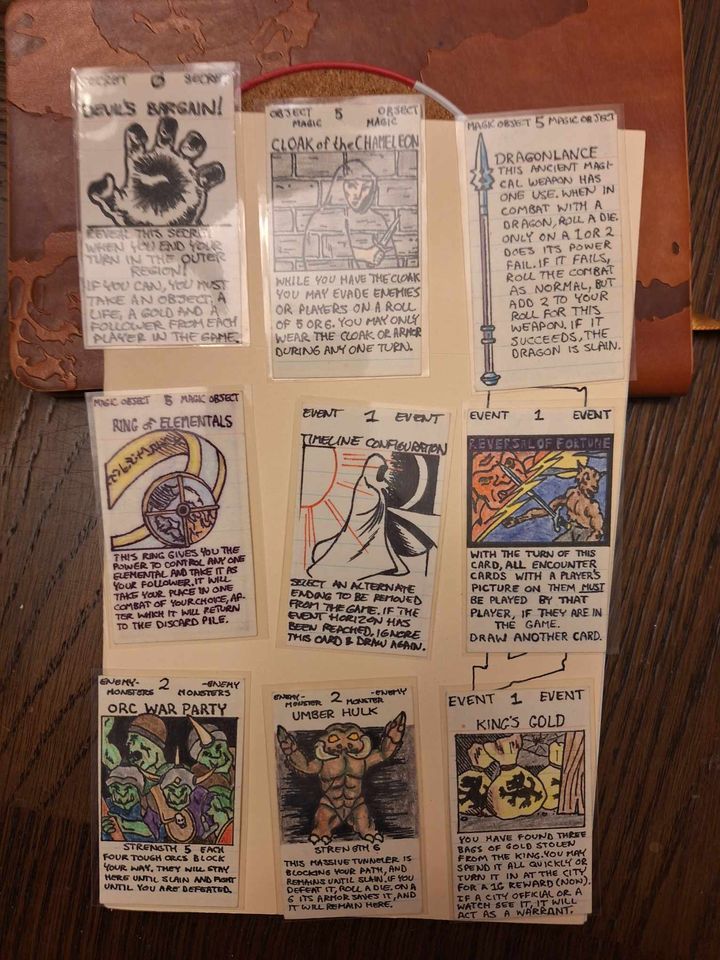 SECRET 0 SECRET
DEVIL'S BARGAIN!
REVEAL THIS SECRET
WHEN YOU END YOUR
TURN IN THE OUTER
REGION!
IF YOU CAN, YOU MUST
TAKE AN OBJECT, A
LIFE, A GOLD AND A
FOLLOWER FROM EACH
PLAYER IN THE GAME.
OBJECT 5 OBJECT
MAGIC MAGIC
CLOAK of the CHAMELEON
WHILE YOU HAVE THE CLOAK
YOU MAY EVADE ENEMIES
OR PLAYERS ON A ROLL
OF 5 OR 6. YOU MAY ONLY
WEAR THE CLOAK OR ARMOR
DURING ANY ONE TURN.
MAGIC OBJECT 5 MAGIC OBJECT
DRAGONLANCE
THIS ANCIENT MAGI-
CAL WEAPON HAS
ONE USE. WHEN IN
COMBAT WITH A
DRAGON, ROLL A DIE.
ONLY ON A 1 OR 2
DOES ITS POWER
FAIL. IF IT FAILS,
ROLL THE COMBAT
AS NORMAL, BUT
ADD 2 TO YOUR
ROLL FOR THIS
WEAPON. IF IT
SUCCEEDS, THE
DRAGON IS SLAIN.
MAGIC OBJECT 5 MAGIC OBJECT
RING of ELEMENTALS
THIS RING GIVES YOU THE
POWER TO CONTROL ANY ONE
ELEMENTAL AND TAKE IT AS
YOUR FOLLOWER. IT WILL
TAKE YOUR PLACE IN ONE
COMBAT OF YOUR CHOICE, AF-
TER WHICH IT WILL RETURN
TO THE DISCARD PILE.
EVENT 1 EVENT
TIMELINE CONFIGURATION
SELECT AN ALTERNATE
ENDING TO BE REMOVED
FROM THE GAME. IF THE
EVENT HORIZON HAS
BEEN REACHED, IGNORE
THIS CARD & DRAW AGAIN.
EVENT 1 EVENT
REVERSAL OF FORTUNE
WITH THE TURN OF THIS
CARD, ALL ENCOUNTER
CARDS WITH A PLAYER'S
PICTURE ON THEM MUST
BE PLAYED BY THAT
PLAYER, IF THEY ARE IN
THE GAME.
DRAW ANOTHER CARD.
ENEMY- 2 -ENEMY
MONSTERS MONSTERS
ORC WAR PARTY
STRENGTH 5 EACH
FOUR TOUGH ORCS BLOCK
YOUR WAY. THEY WILL STAY
HERE UNTIL SLAIN AND FIGHT
UNTIL YOU ARE DEFEATED.
ENEMY- 2 -ENEMY
MONSTER MONSTER
UMBER HULK
STRENGTH 6
THIS MASSIVE TUNNELER IS
BLOCKING YOUR PATH, AND
REMAINS UNTIL SLAIN. IF YOU
DEFEAT IT, ROLL A DIE. ON A
6 ITS ARMOR SAVES IT, AND
IT WILL REMAIN HERE.
EVENT 1 EVENT
KING'S GOLD
YOU HAVE FOUND THREE
BAGS OF GOLD STOLEN
FROM THE KING. YOU MAY
SPEND IT ALL QUICKLY OR
TURN IT IN AT THE CITY
FOR A 1G REWARD (NOW).
IF A CITY OFFICIAL OR A
WATCH SEE IT, IT WILL
ACT AS A WARRANT.